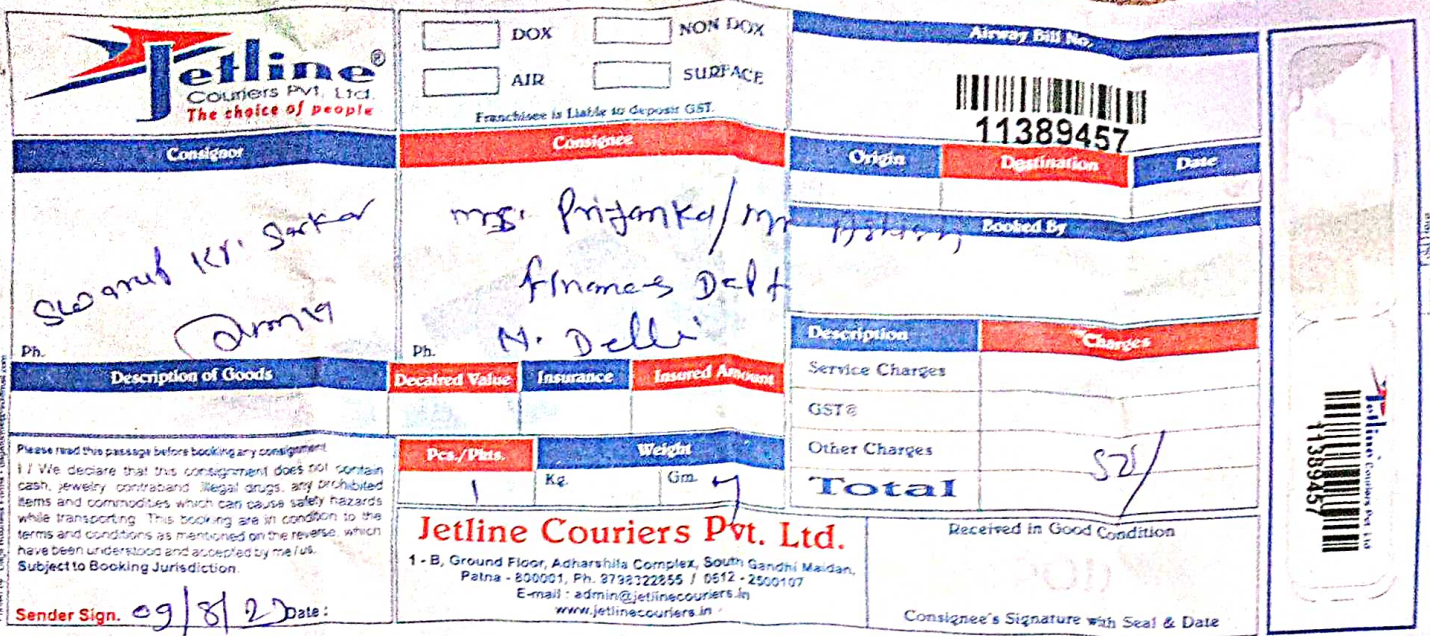 Jetline®
Couriers Pvt. Ltd.
The choice of people
DOX
NON DOX
AIR
SURFACE
Franchisee is Liable to deposit GST.
Airway Bill No.
11389457
Consignor
Consignee
Origin
Destination
Date
Kr. Sarkar
Ph.
Priyanka/
Dept
N. Delhi
Ph.
Booked By
Description
Charges
Service Charges
GST@
Other Charges
Total
Description of Goods
Decalred Value
Insurance
Insured Amount
Pcs./Pkts.
Weight
1
Kg.
Gm.
Please read this passage before booking any consignment
I / We declare that this consignment does not contain
cash, jewelry contraband illegal drugs, any prohibited
items and commodites which can cause safety hazards
while transporting. This booking are in condition to the
terms and conditions as mentioned on the reverse, which
have been understood and accepted by me / us.
Subject to Booking Jurisdiction.
Sender Sign.
09/8/2
Date :
Jetline Couriers Pvt. Ltd.
1 - B, Ground Floor, Adharshila Complex, South Gandhi Maidan,
Patna - 800001, Ph. 9798322855 / 0612 - 2500107
E-mail : admin@jetlinecouriers.in
www.jetlinecouriers.in
Received in Good Condition
Consignee's Signature with Seal & Date
Jetline Couriers Pvt. Ltd
11389457